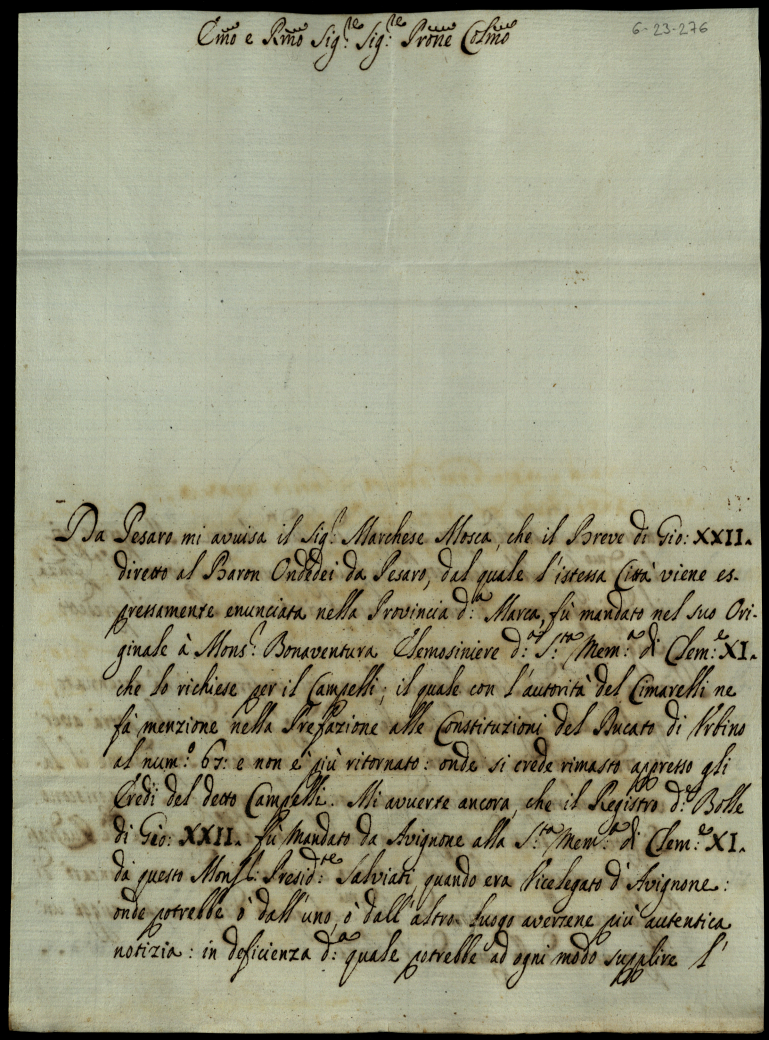 Em̃o e Rm̃o Sig.re Sig.re Prõne Colm̃o
6-23-276
Da Pesaro mi avvisa il Sig.r Marchese Mosca, che il Breve di Gio: XXII.
diretto al Baron Ondedei da Pesaro, dal quale l'istessa Città viene es-
pressamente enunciata nella Provincia d.a Marca, fù mandato nel suo Ori-
ginale à Mons.r Bonaventura Elemosiniere d.a S.ta Mem.a di Clem.e XI.
che lo richiese per il Campelli; il quale con l'autorità del Cimarelli ne
fà menzione nella Preffazione alle Constituzioni del Ducato di Urbino
al num.o 67: e non è più ritornato: onde si crede rimasto appresso gli
Eredi del detto Campelli. Mi avverte ancora, che il Registro d.e Bolle
di Gio: XXII. fù mandato da Avignone alla S.ta Mem.a di Clem.e XI.
da questo Mons.r Presid.te Salviati, quando era Vicelegato d'Avignone:
onde potrebbe ò dall'uno, ò dall'altro luogo aversene più autentica
notizia: in deficienza d.a quale potrebbe ad ogni modo supplire l'